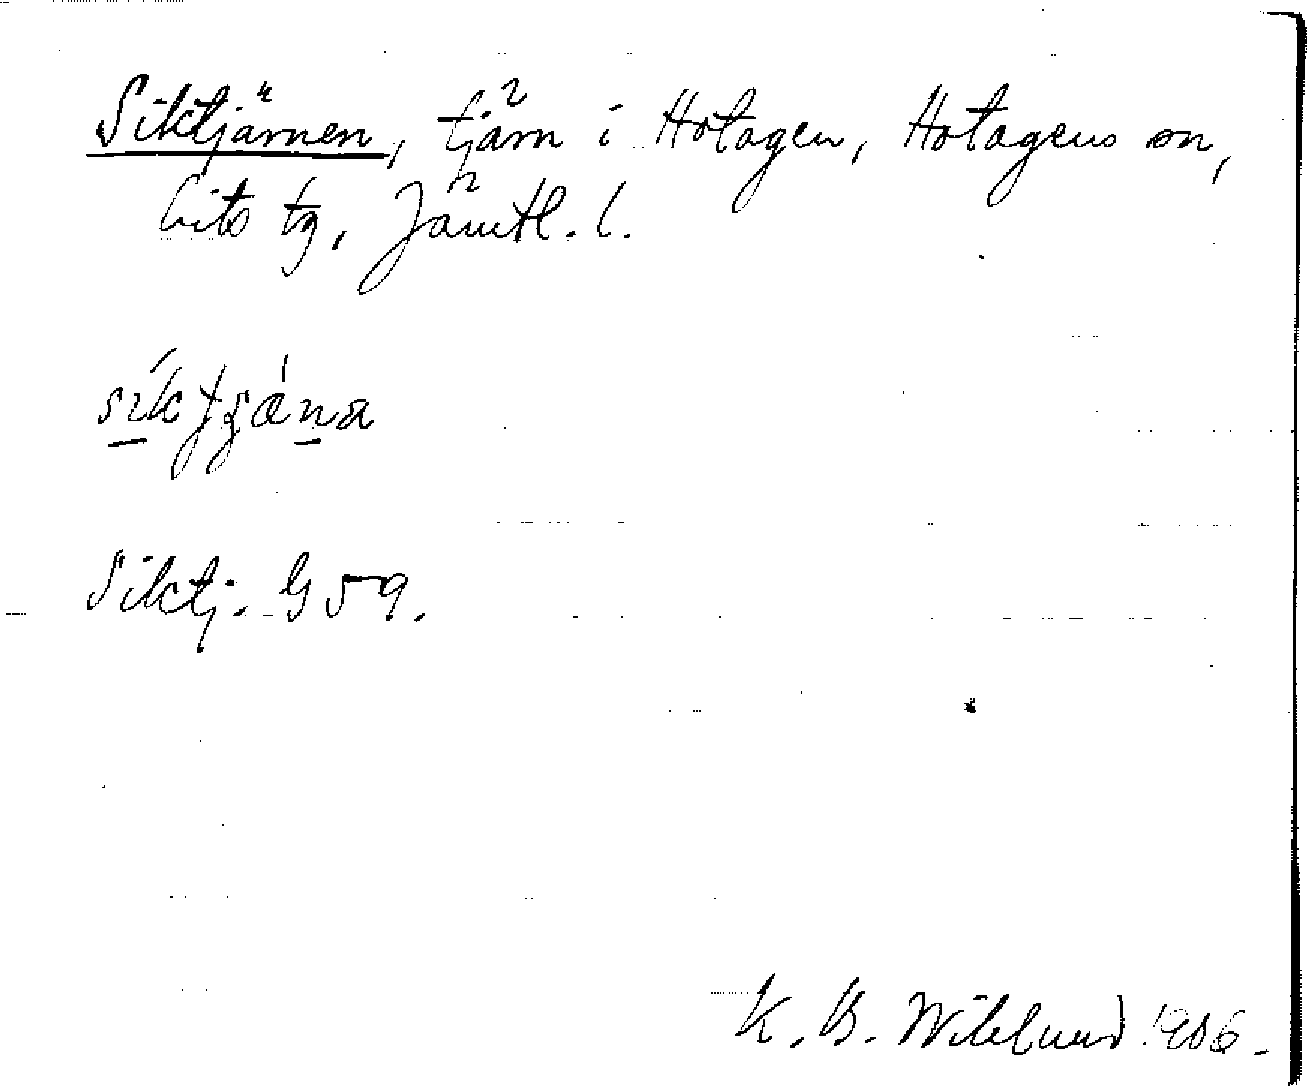 Siktjärnen, tjärn i Hotagen, Hotagens sn,
Lits tg, Jämtl. l.
Siktj. G 59.
K. B. Wiklund 1906.